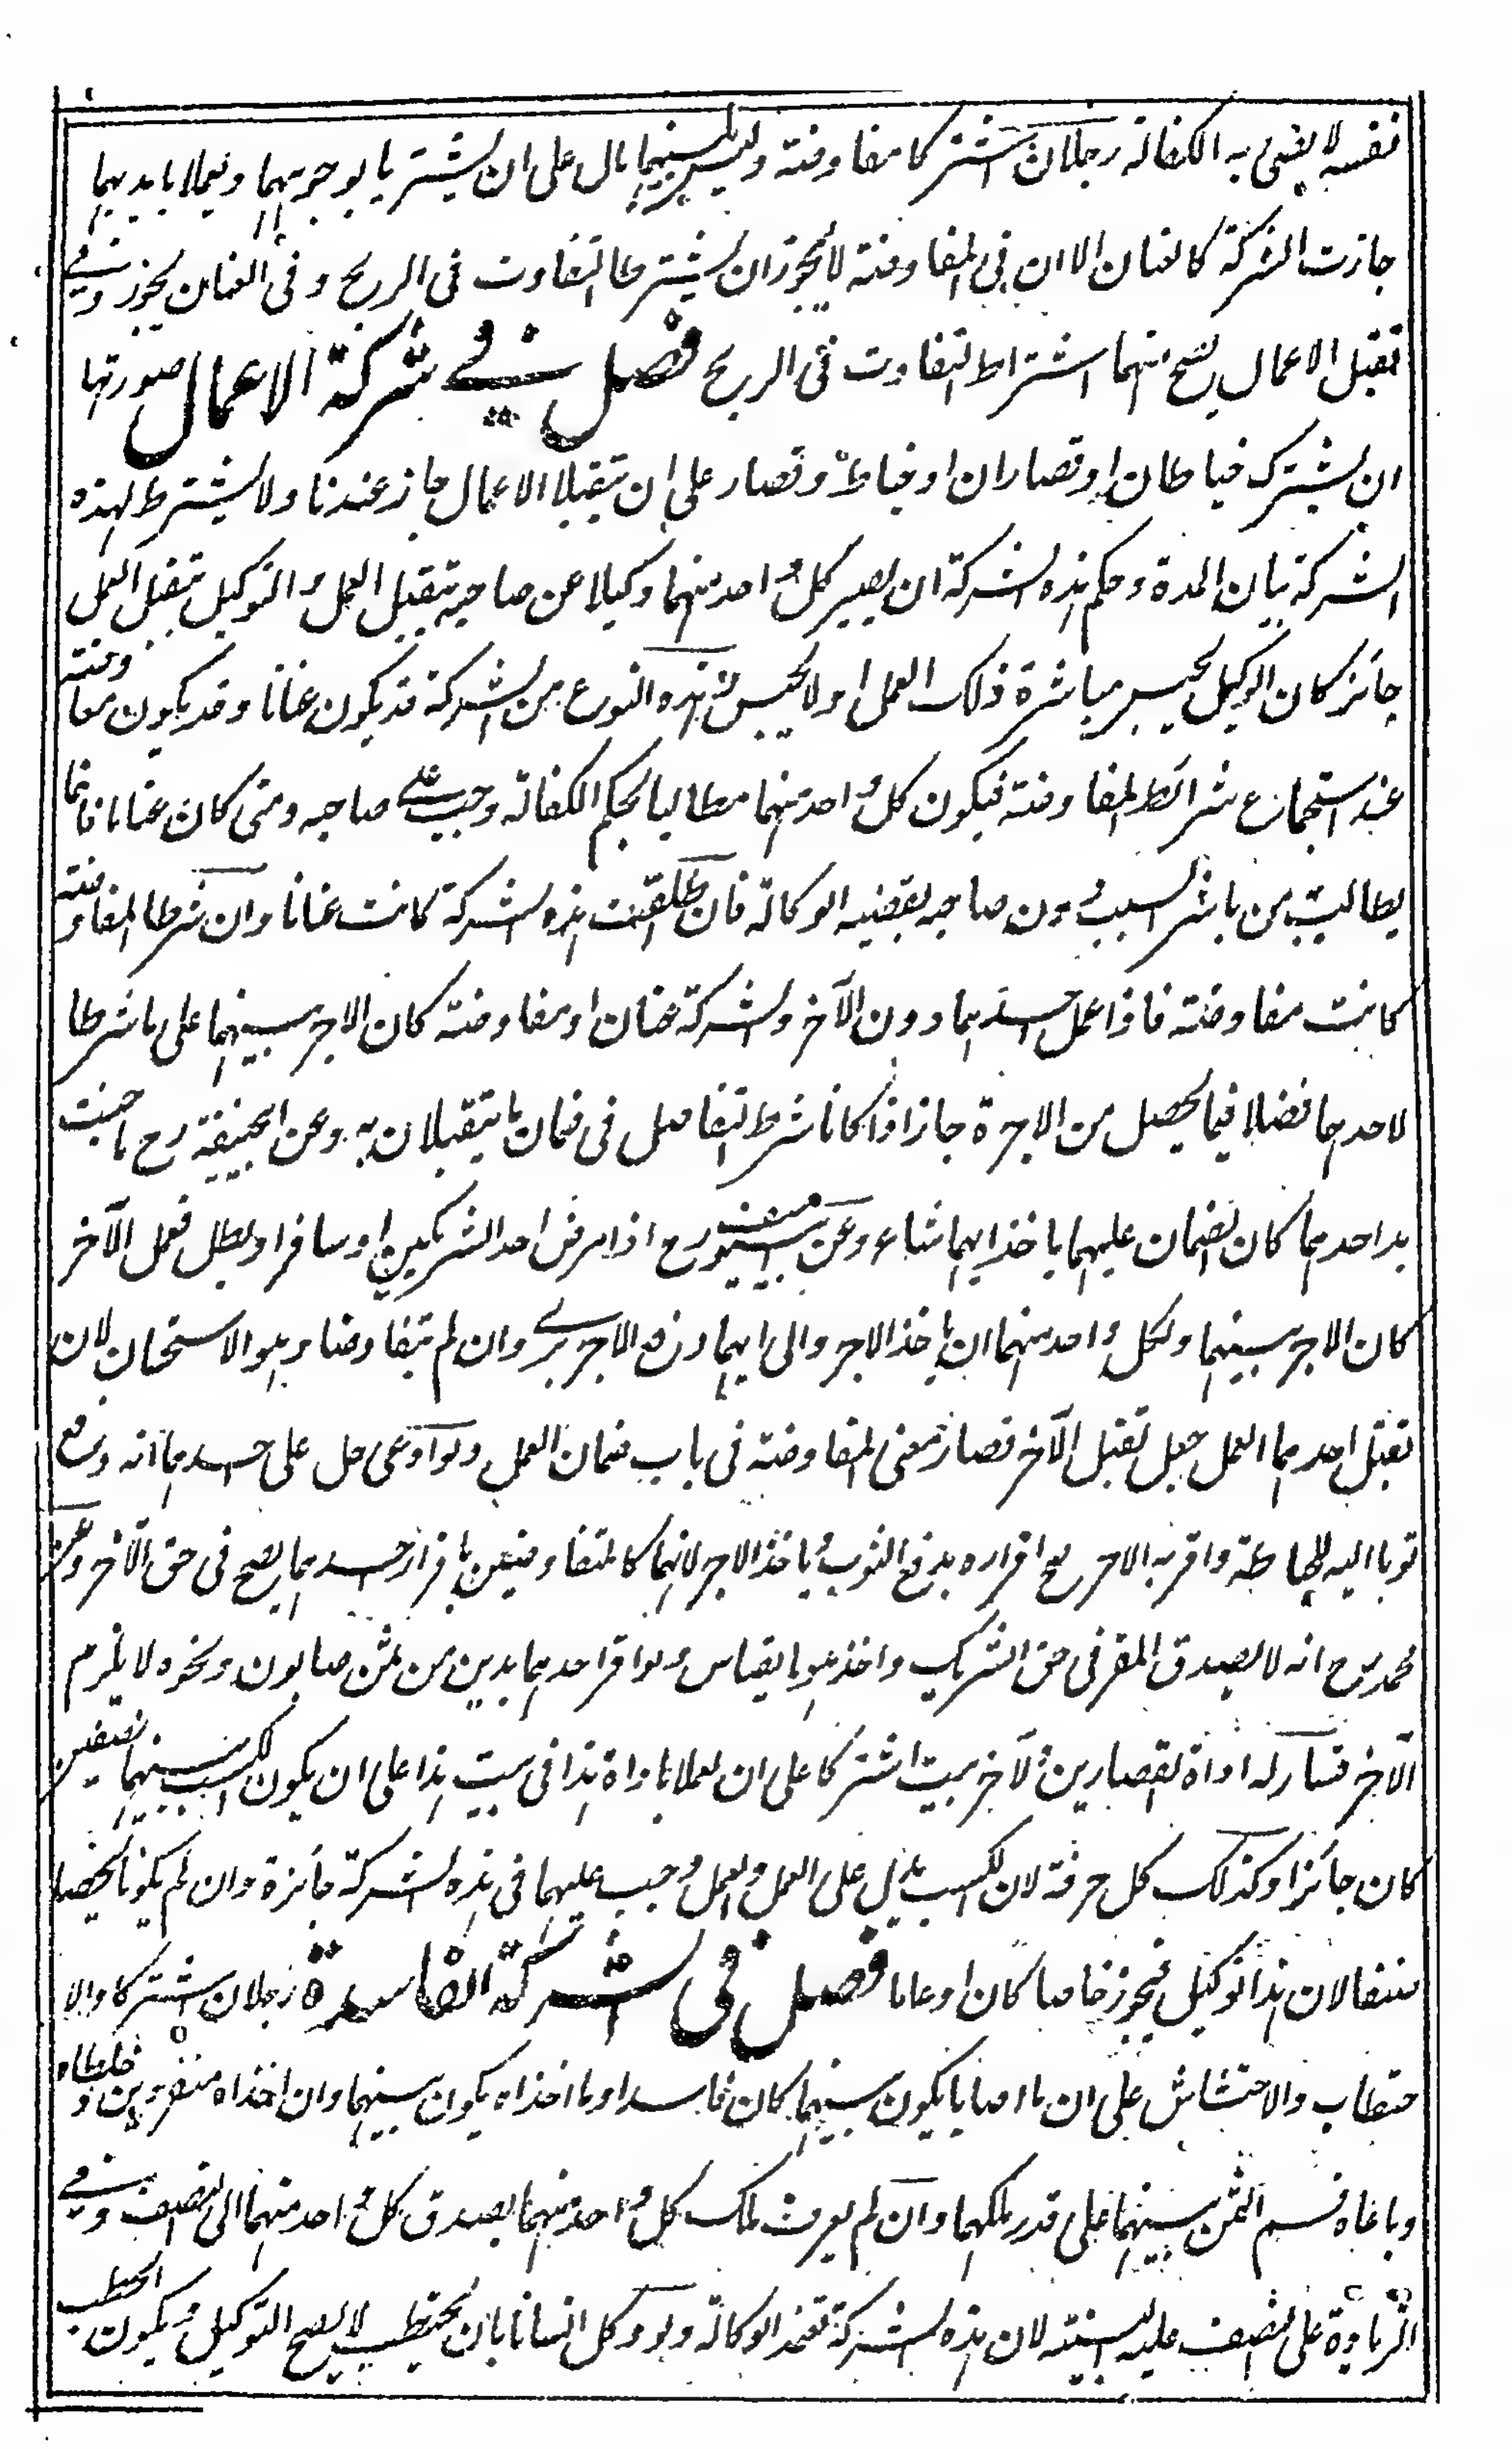 نفسه لا يقضى به الكفالة رجلان اشتركا مفاوضة وليس بينهما مال على ان يشتريا بوجوههما ويعملا بايديهما
جازت الشركة كالعنان الا ان في المفاوضة لا يجوز ان يشترطا التفاوت فى الربح وفى العنان يجوز وفي
تقبل الاعمال يصح منهما اشتراط التفاوت فى الربح فصل في شركة الاعمال صورتها
ان يشترك خياطان او قصاران او خياط وقصار على ان يتقبلا الاعمال جاز عندنا ولا يشترط لهذه
الشركة بيان المدة وحكم هذه الشركة ان يصير كل واحد منهما وكيلا عن صاحبه بتقبل العمل والتوكيل بتقبل العمل
جائز كان الوكيل يحسن مباشرة ذلك العمل او لا يحسن هذه النوع من الشركة قد يكون عنانا وقد يكون مفاوضة
عند استجماع شرائط المفاوضة فيكون كل واحد منهما مطالبا بحكم الكفالة وجب على صاحبه ومتى كان عنانا فانما
يطالب من باشر السبب دون صاحبه بقضية الوكالة فان اطلقت هذه الشركة كانت عنانا وان شرطا المفاوضة
كانت مفاوضة فاذا عمل احدهما دون الآخر والشركة عنان او مفاوضة كان الاجر بينهما على ما شرطا
لاحدهما فضلا فيما يحصل من الاجرة جاز اذا كانا شرطا التفاضل فى ضمان ما يتقبلان به وعن ابيحنيفة رح ما جنت
يد احدهما كان الضمان عليهما ياخذ ايهما شاء وعن ابي يوسف رح اذا مرض احد الشريكين او سافر او بطل فعمل الآخر
كان الاجر بينهما ولكل واحد منهما ان ياخذ الاجر والى ايهما دفع الاجر برى وان لم يتفاوضا وهو الاستحسان لان
تقبل احدهما العمل جعل تقبل الآخر فصار معنى المفاوضة فى باب ضمان العمل ولو ادعى رجل على احدهما انه دفع
ثوبا اليه للخياطة واقر به الآخر صح اقراره بدفع الثوب وياخذ الاجر لانهما كالمتفاوضين باقرار احدهما يصح فى حق الآخر وعن
محمد رح انه لا يصدق المقر فى حق الشريك واخذ هو بالقياس ولو اقر احدهما بدين من ثمن صابون ونحوه لا يلزم
الآخر قصار له اداة القصارين ولآخر بيت اشتركا على ان يعملا باداة هذا فى بيت هذا على ان يكون الكسب بينهما نصفين
كان جائزا وكذلك كل حرفة لان الكسب بدل على العمل والعمل وجب عليهما فى هذه الشركة جائزة وان لم يكونا يحصلا
ننفا لان هذا توكيل فيجوز خاصا كان او عاما فصل فى الشركة الفاسدة رجلان اشتركا والا
حتطاب والاحتشاش على ان ما اصابا يكون بينهما كان فاسدا وما اخذاه يكون بينهما وان اخذاه منفردين وخلطاه
وباعاه قسم الثمن بينهما على قدر ملكهما وان لم يعرف ملك كل واحد منهما يصدق كل واحد منهما الى النصف وفي
الزيادة على النصف عليه البينة لان هذه الشركة تعتمد الوكالة ولو وكل انسانا بان يحتطب لا يصح التوكيل ويكون الحطب